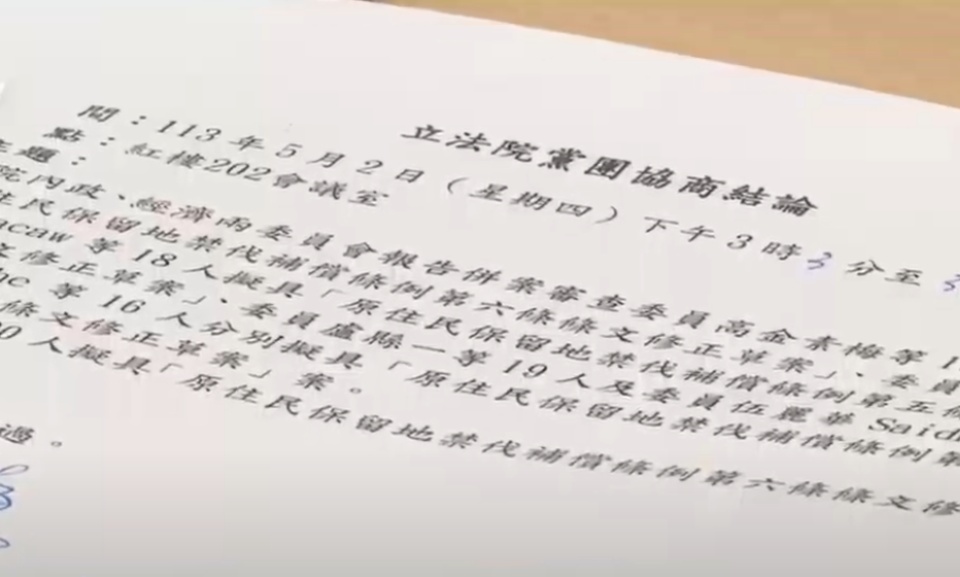 立法院黨團協商結論
間：113 年 5 月 2 日（星期四）下午 3 時 3 分至 3
點：紅樓202會議室
主題：
院內政、經濟兩委員會報告併案審查委員高金素梅等 1
住民保留地禁伐補償條例第六條條文修正草案」、委員
acaw 等 18 人擬具「原住民保留地禁伐補償條例第五條
文修正草案」、委員盧縣一等 19 人及委員伍麗華 Said
he 等 16 人分別擬具「原住民保留地禁伐補償條例第
條文修正草案」案。
0 人擬具「原住民保留地禁伐補償條例第六條條文修
過。